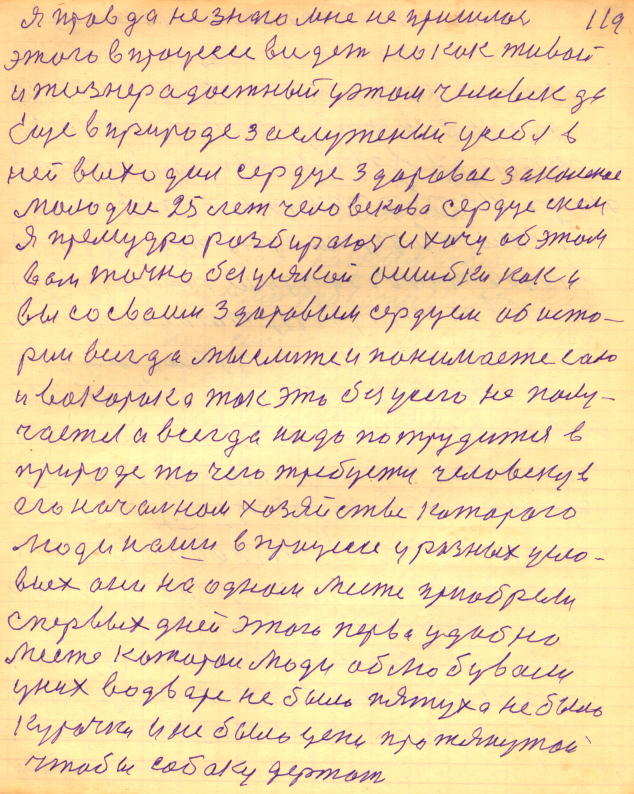 Я правда не знаю мне не пришлос 119
этого в процессе видет но как живой
и жизнерадостный у этом человек да
Еще в природе заслуженый у себя в
ней выходил сердце здоровае закаленае
молодые 25 лет человекова сердце
я премудро разбираюс и хочу об этом
вам точно без усякой ошибки как и
вы со своим здоровым сердцем об исто-
рии всегда мыслите и понимаете
и так это без усего не полу-
чается а всегда надо потрудится в
природе то чего требуется человеку в
его началном хозяйстве которого
люди нашли в процессе у разных усло-
виех они на одном месте приобрели
с первых дней этого перва удобно
месте которои люди облюбували
у них во дваре не было пятуха не было
курочки и не было цепи протянутой
чтобы собаку держат